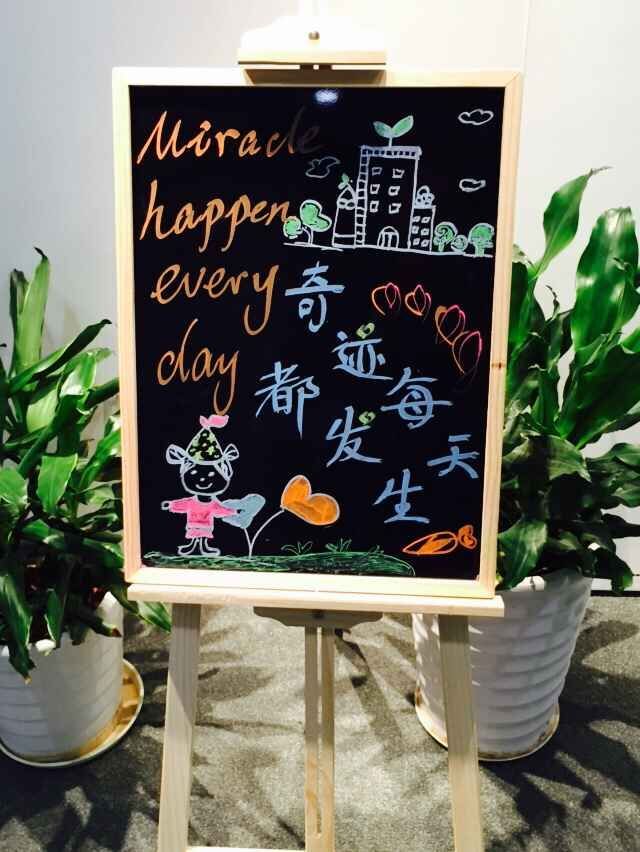 Miracle
happen
every
day
奇迹每天
都发生